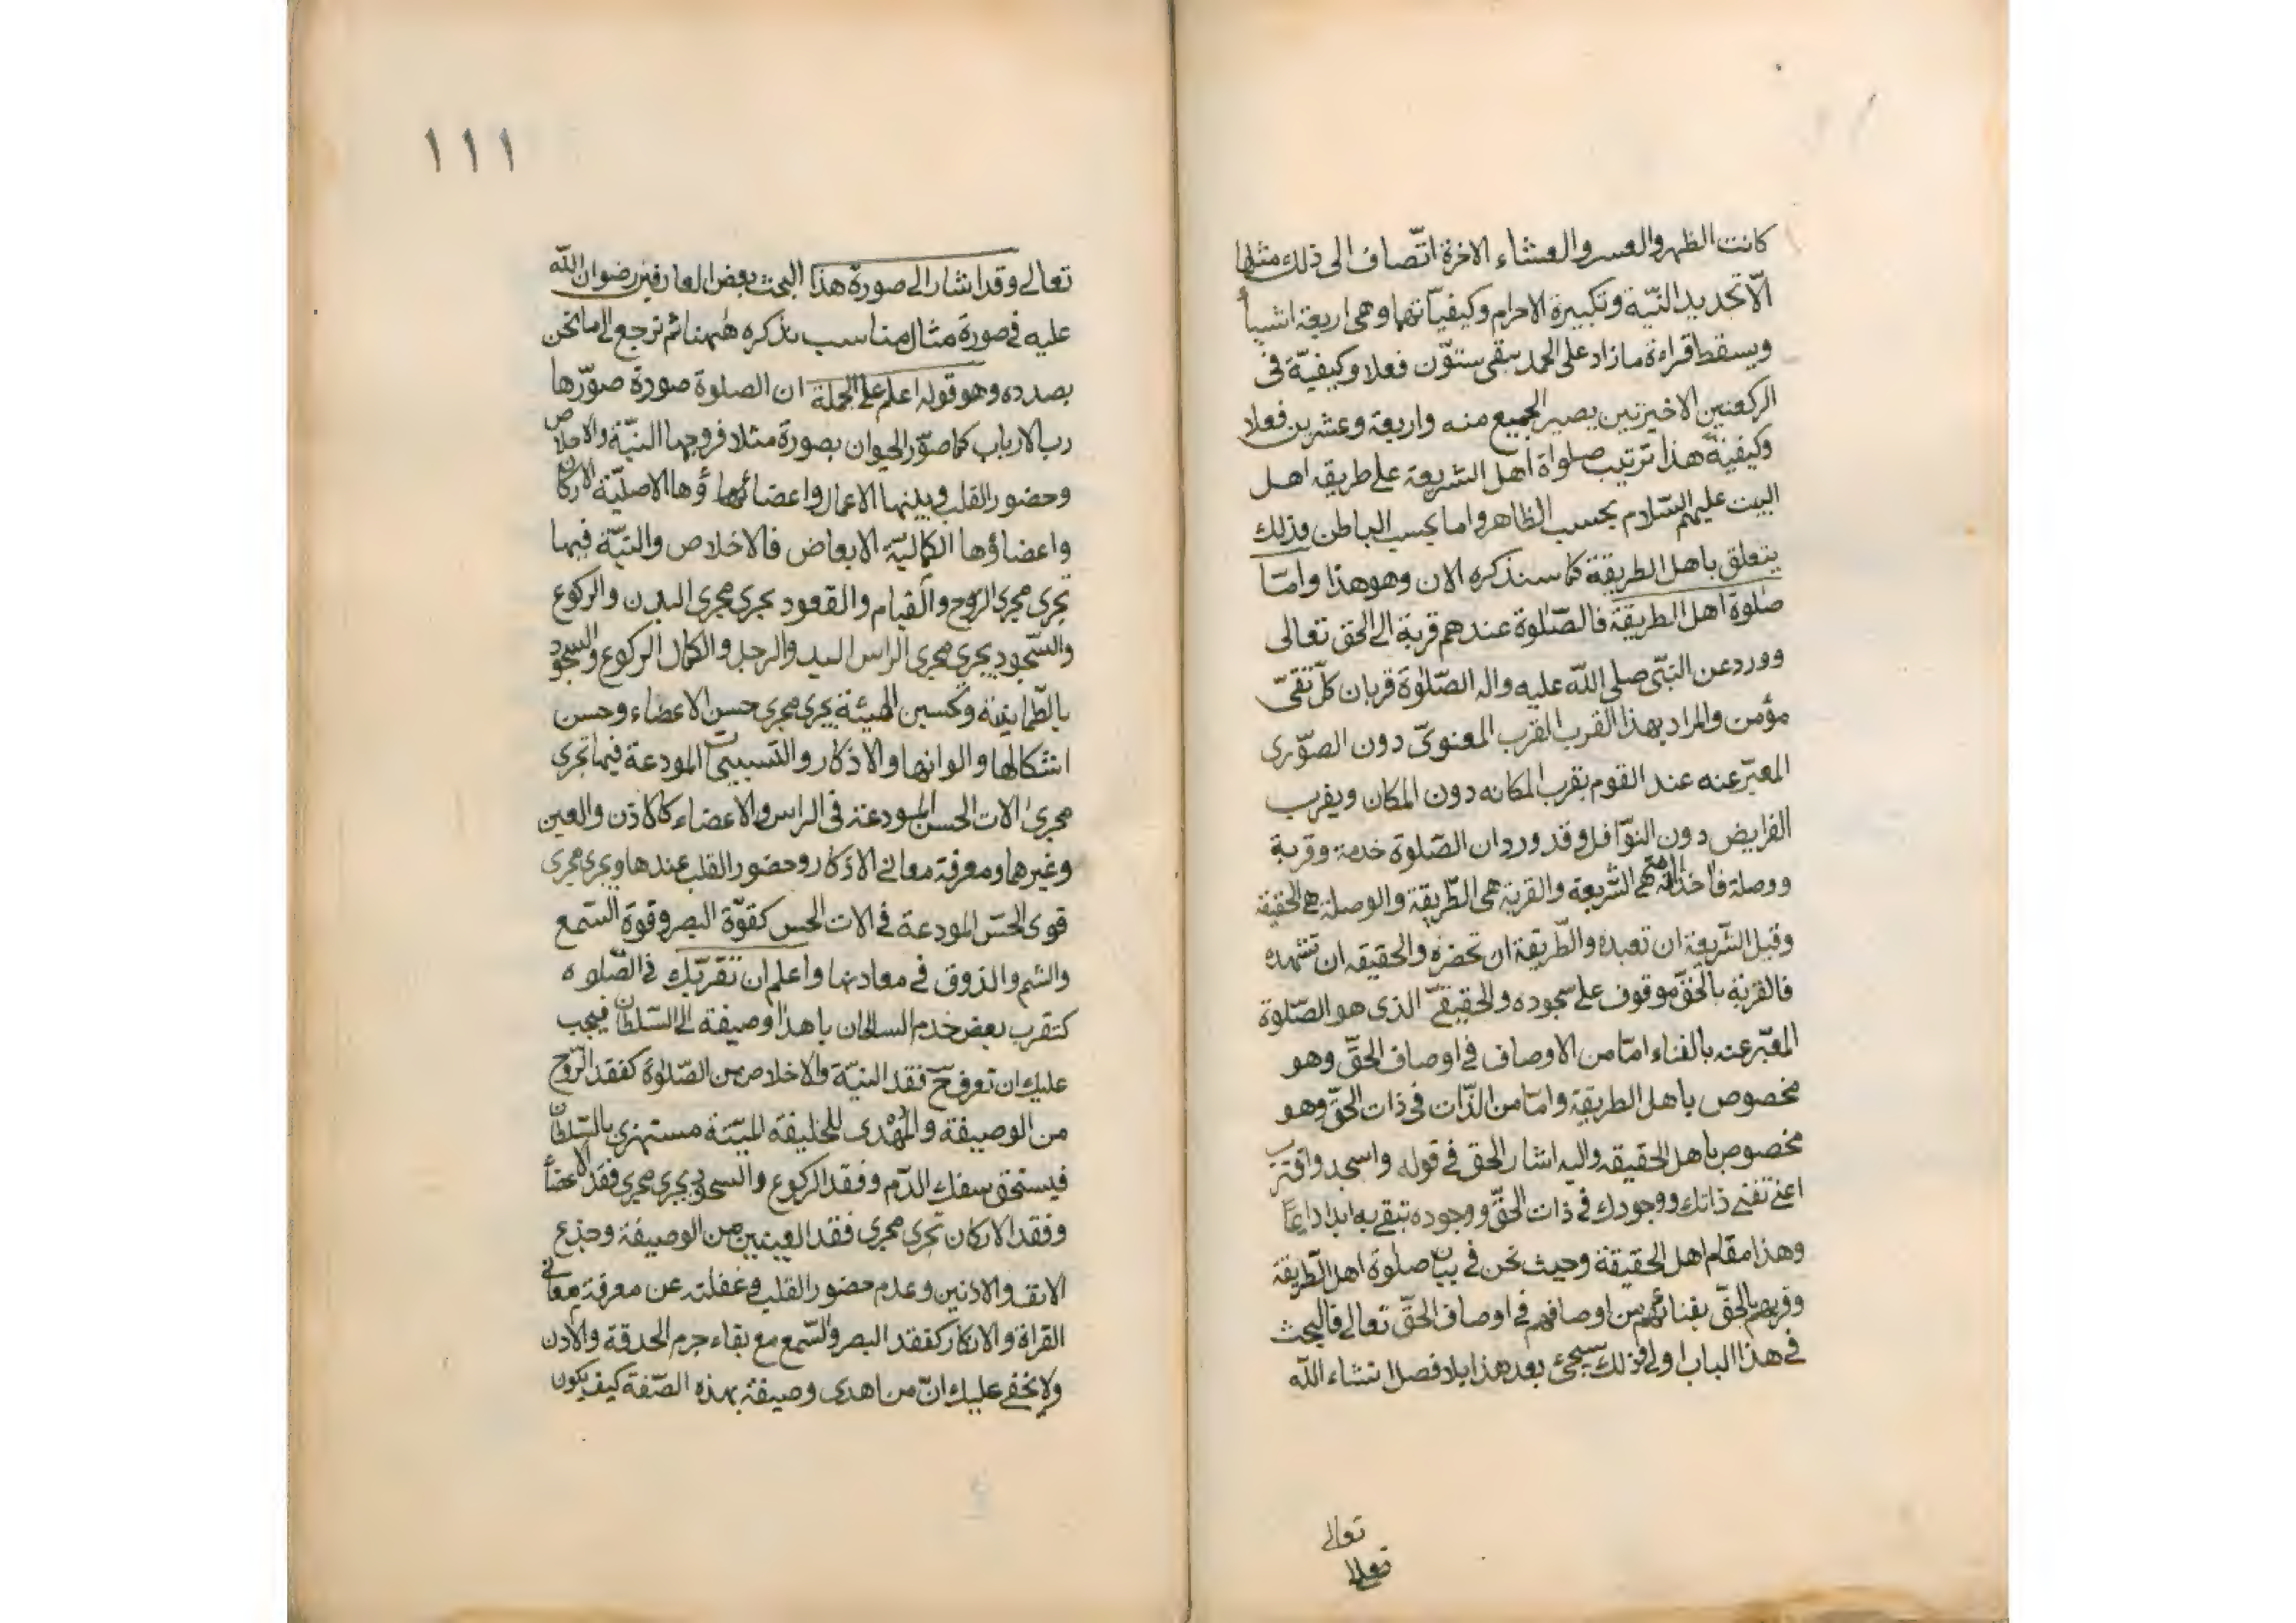 كانت الظهر والعسر والعشاء الاخرة اتّصاف الى ذلك مثلها
الّا تجديد النيّة وتكبيرة الاحرام وكيفيّاتها وهى اربعة اشيأ
ويسقط قراءة مازاد على الحمد يبقى ستوّن فعلا وكيفيّة فى
الركعتين الاخيرتين يصير الجميع منه واربعة وعشرين فعلا
وكيفيّة هذا ترتيب صلواة اهل الشريعة على طريقه اهل
البيت عليهم السّلام بحسب الظاهر واما بحسب الباطن وذلك
يتعلق باهل الطريقة كما سنذكره الان وهو هذا وامّا
صلوة اهل الطريقة فالصّلوة عندهم قربة الى الحق تعالى
وورد عن النبّى صلى الله عليه واله الصّلوة قربان كلّ تقىّ
مؤمن والمراد بهذا القرب القرب المعنوىّ دون الصوّرى
المعبّر عنه عند القوم بقرب المكانه دون المكان وبقرب
الفرايض دون النوّافل وقد ورد ان الصّلوة خدمة وقربة
ووصلة فالخدمة هى الشّريعة والقربة هى الطّريقة والوصلة هى الحقيقة
وقيل الشّريعة ان تعبده والطّريقة ان تحضره والحقيقه ان تشهده
فالقربة بالحقّ موقوف على سجوده والحقيقىّ الذى هو الصّلوة
المعبّر عنه بالفناء امّا من الاوصاف فى اوصاف الحقّ وهو
مخصوص باهل الطريقة وامّا من الذّات فى ذات الحقّ وهو
مخصوص باهل الحقيقه واليه اشار الحق فى قوله واسجد واقترب
اعنى تفنى ذاتك ووجودك فى ذات الحقّ ووجوده تبقى به ابدا دايمًا
وهذا مقام اهل الحقيقة وحيث نحن فى بيان صلوة اهل الطّريقة
وقربهم بالحقّ بفنائهم من اوصافهم فى اوصاف الحقّ تعالى فالبحث
فى هذا الباب اولى وذلك سيجئ بعد هذا بلا فصل انشاء الله
تعالى
تعالى
١١١
تعالى وقد اشار الى صورة هذا البحث بعض العارفين رضوان الله
عليه فى صورة مثال مناسب نذكره ههنا ثم نرجع الى ما نحن
بصدده وهو قوله اعلم على الجملة ان الصلوة صورة صوّرها
رب الارباب كما صوّر الحيوان بصورة مثلا فروحها النيّة والاخلاص
وحضور القلب وبدنها الاعمال واعضائها ؤها الاصليّة الاركان
واعضاؤها الكماليّة الابعاض فالاخلاص والنيّة فيها
تجرى مجرى الرّوح والقيام والقعود يجرى مجرى البدن والركوع
والسّجود يجرى مجرى الراس اليد والرجل والكمال الركوع والسجود
بالطّمانينة وتحسين الهيئة يجرى مجرى حسن الاعضاء وحسن
اشكالها والوانها والاذكار والتسبيحات المودعة فيها تجرى
مجرى الات الحسن المودعة فى الراس والاعضاء كالاذن والعين
وغيرهما ومعرفة معانى الاذكار وحضور القلب عندها ويجرى مجرى
قوى الحسّ المودعة فى الات الحس كقوّة البصر وقوة السّمع
والشم والذوق فى معادنها واعلم ان تقرّبك فى الصّلوه
كتقرب بعض خدم السلطان باهدا وصيفة الى السّلطان فيجب
عليك ان تعرف حّ فقد النيّة والاخلاص من الصّلوة كفقد الرّوح
من الوصيفة والمُهْدى للخليفة الميّتة مستهزئ بالسّلطان
فيستحق سفك الدّم وفقد الركوع والسجود يجرى مجرى فقد الاعضأ
وفقد الاركان تجرى مجرى فقد العينين من الوصيفة وجذع
الانف والاذنين وعدم حضور القلب وغفلته عن معرفة معانى
القراة والاذكار كفقد البصر والسّمع مع بقاء جرم الحدقة والاذن
ولا يخفى عليك انّ من اهدى وصيفة بهذه الصّفة كيف يكون